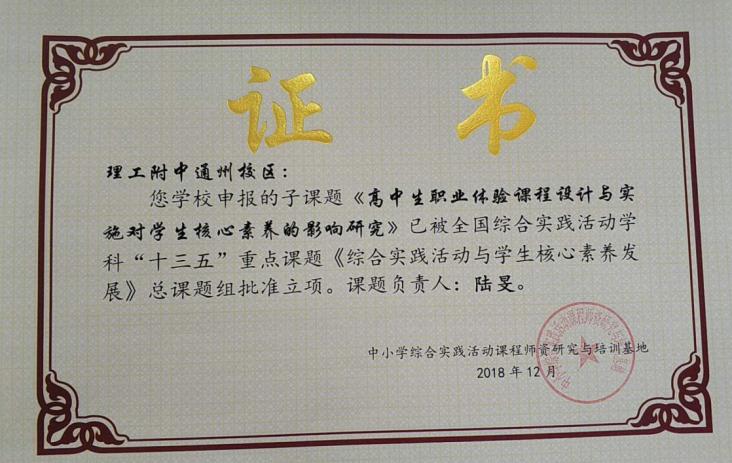 证 书
理工附中通州校区：
您学校申报的子课题《高中生职业体验课程设计与实
施对学生核心素养的影响研究》已被全国综合实践活动学
科“十三五”重点课题《综合实践活动与学生核心素养发
展》总课题组批准立项。课题负责人：陆旻。
中小学综合实践活动课程师资研究与培训基地
2018 年 12 月